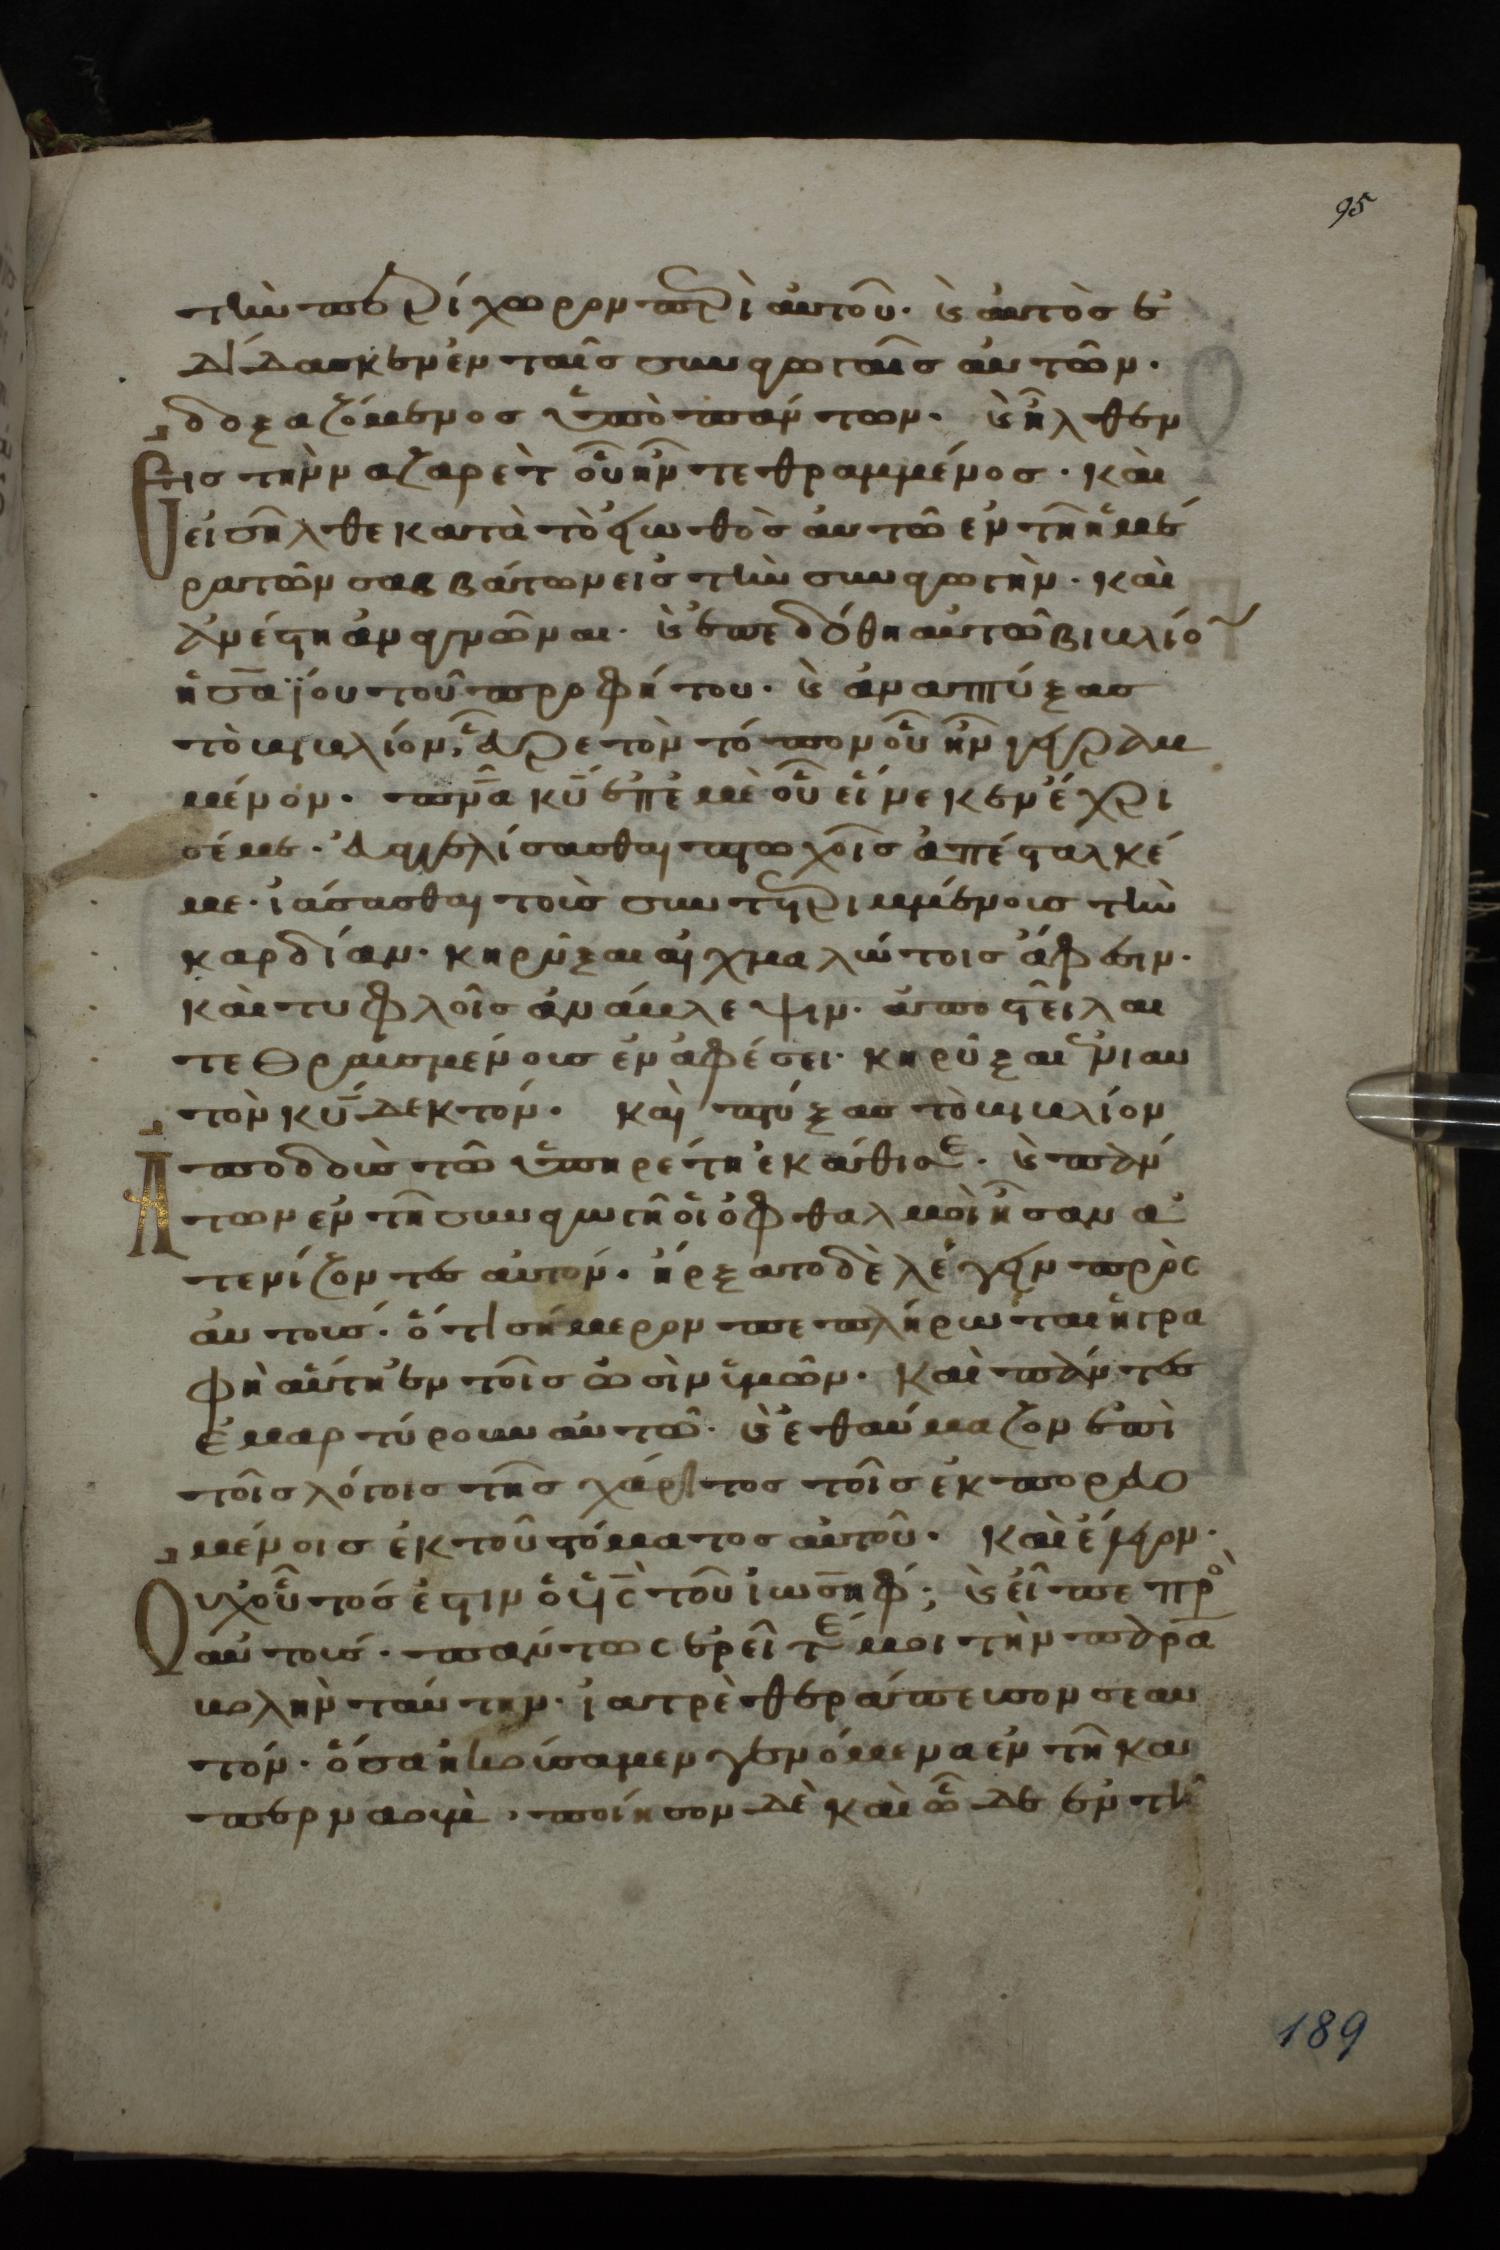 95
τὴν περίχωρον περὶ αὐτοῦ· καὶ αὐτὸς ἐ
δίδασκεν ἐν ταῖς συναγωγαῖς αὐτῶν·
δοξαζόμενος ὑπὸ πάντων· καὶ ἦλθεν
εἰς τὴν ναζαρὲτ οὗ ἦν τεθραμμένος· καὶ
εἰσῆλθε κατὰ τὸ εἰωθὸς αὐτῶ ἐν τῆ ἡμέ
ρα τῶν σαββάτων εἰς τὴν συναγωγὴν· καὶ
ἀνέστη ἀναγνῶναι· καὶ ἐπεδόθη αὐτῶ βιβλίον
ἡσαΐου τοῦ προφήτου· καὶ ἀναπτύξας
τὸ βιβλίον, εὗρε τὸν τόπον οὗ ἦν γεγραμ
μένον· πνα κυ ἐπ ἐμὲ οὗ εἵνεκεν ἔχρι
σέ με· εὐαγγελίσασθαι πτωχοῖς ἀπέσταλκέ
με· ἰάσασθαι τοὺς συντετριμμένους τὴν
καρδίαν· κηρύξαι αἰχμαλώτοις ἄφεσιν·
καὶ τυφλοῖς ἀνάβλεψιν· ἀποστεῖλαι
τεθραυσμένους ἐν ἀφέσει· κηρύξαι ἐνιαυ
τὸν κυ δεκτόν· καὶ πτύξας τὸ βιβλίον
ἀποδοὺς τῶ ὑπηρέτη ἐκάθισε· καὶ πάν
των ἐν τῆ συναγωγῆ οἱ ὀφθαλμοὶ ἦσαν ἀ
τενίζοντες αὐτόν· ἤρξατο δὲ λέγειν πρὸς
αὐτούς· ὅτι σήμερον πεπλήρωται ἡ γρα
φὴ αὕτη ἐν τοῖς ὠσὶν ὑμῶν· καὶ πάντες
ἐμαρτύρουν αὐτῶ· καὶ ἐθαύμαζον ἐπὶ
τοῖς λόγοις τῆς χάριτος τοῖς ἐκπορευο
μένοις ἐκ τοῦ στόματος αὐτοῦ· καὶ ἔλεγον·
Οὐχ οὗτός ἐστιν ὁ υς τοῦ ἰωσὴφ; καὶ εἶπε πρὸς
αὐτούς· πάντως ἐρεῖτέ μοι τὴν παρα
βολὴν ταύτην· ἰατρὲ θεράπευσον σεαυ
τόν· ὅσα ἠκούσαμεν γενόμενα ἐν τῆ κα
περναοὺμ, ποίησον δὲ καὶ ὧδε ἐν τῆ
189